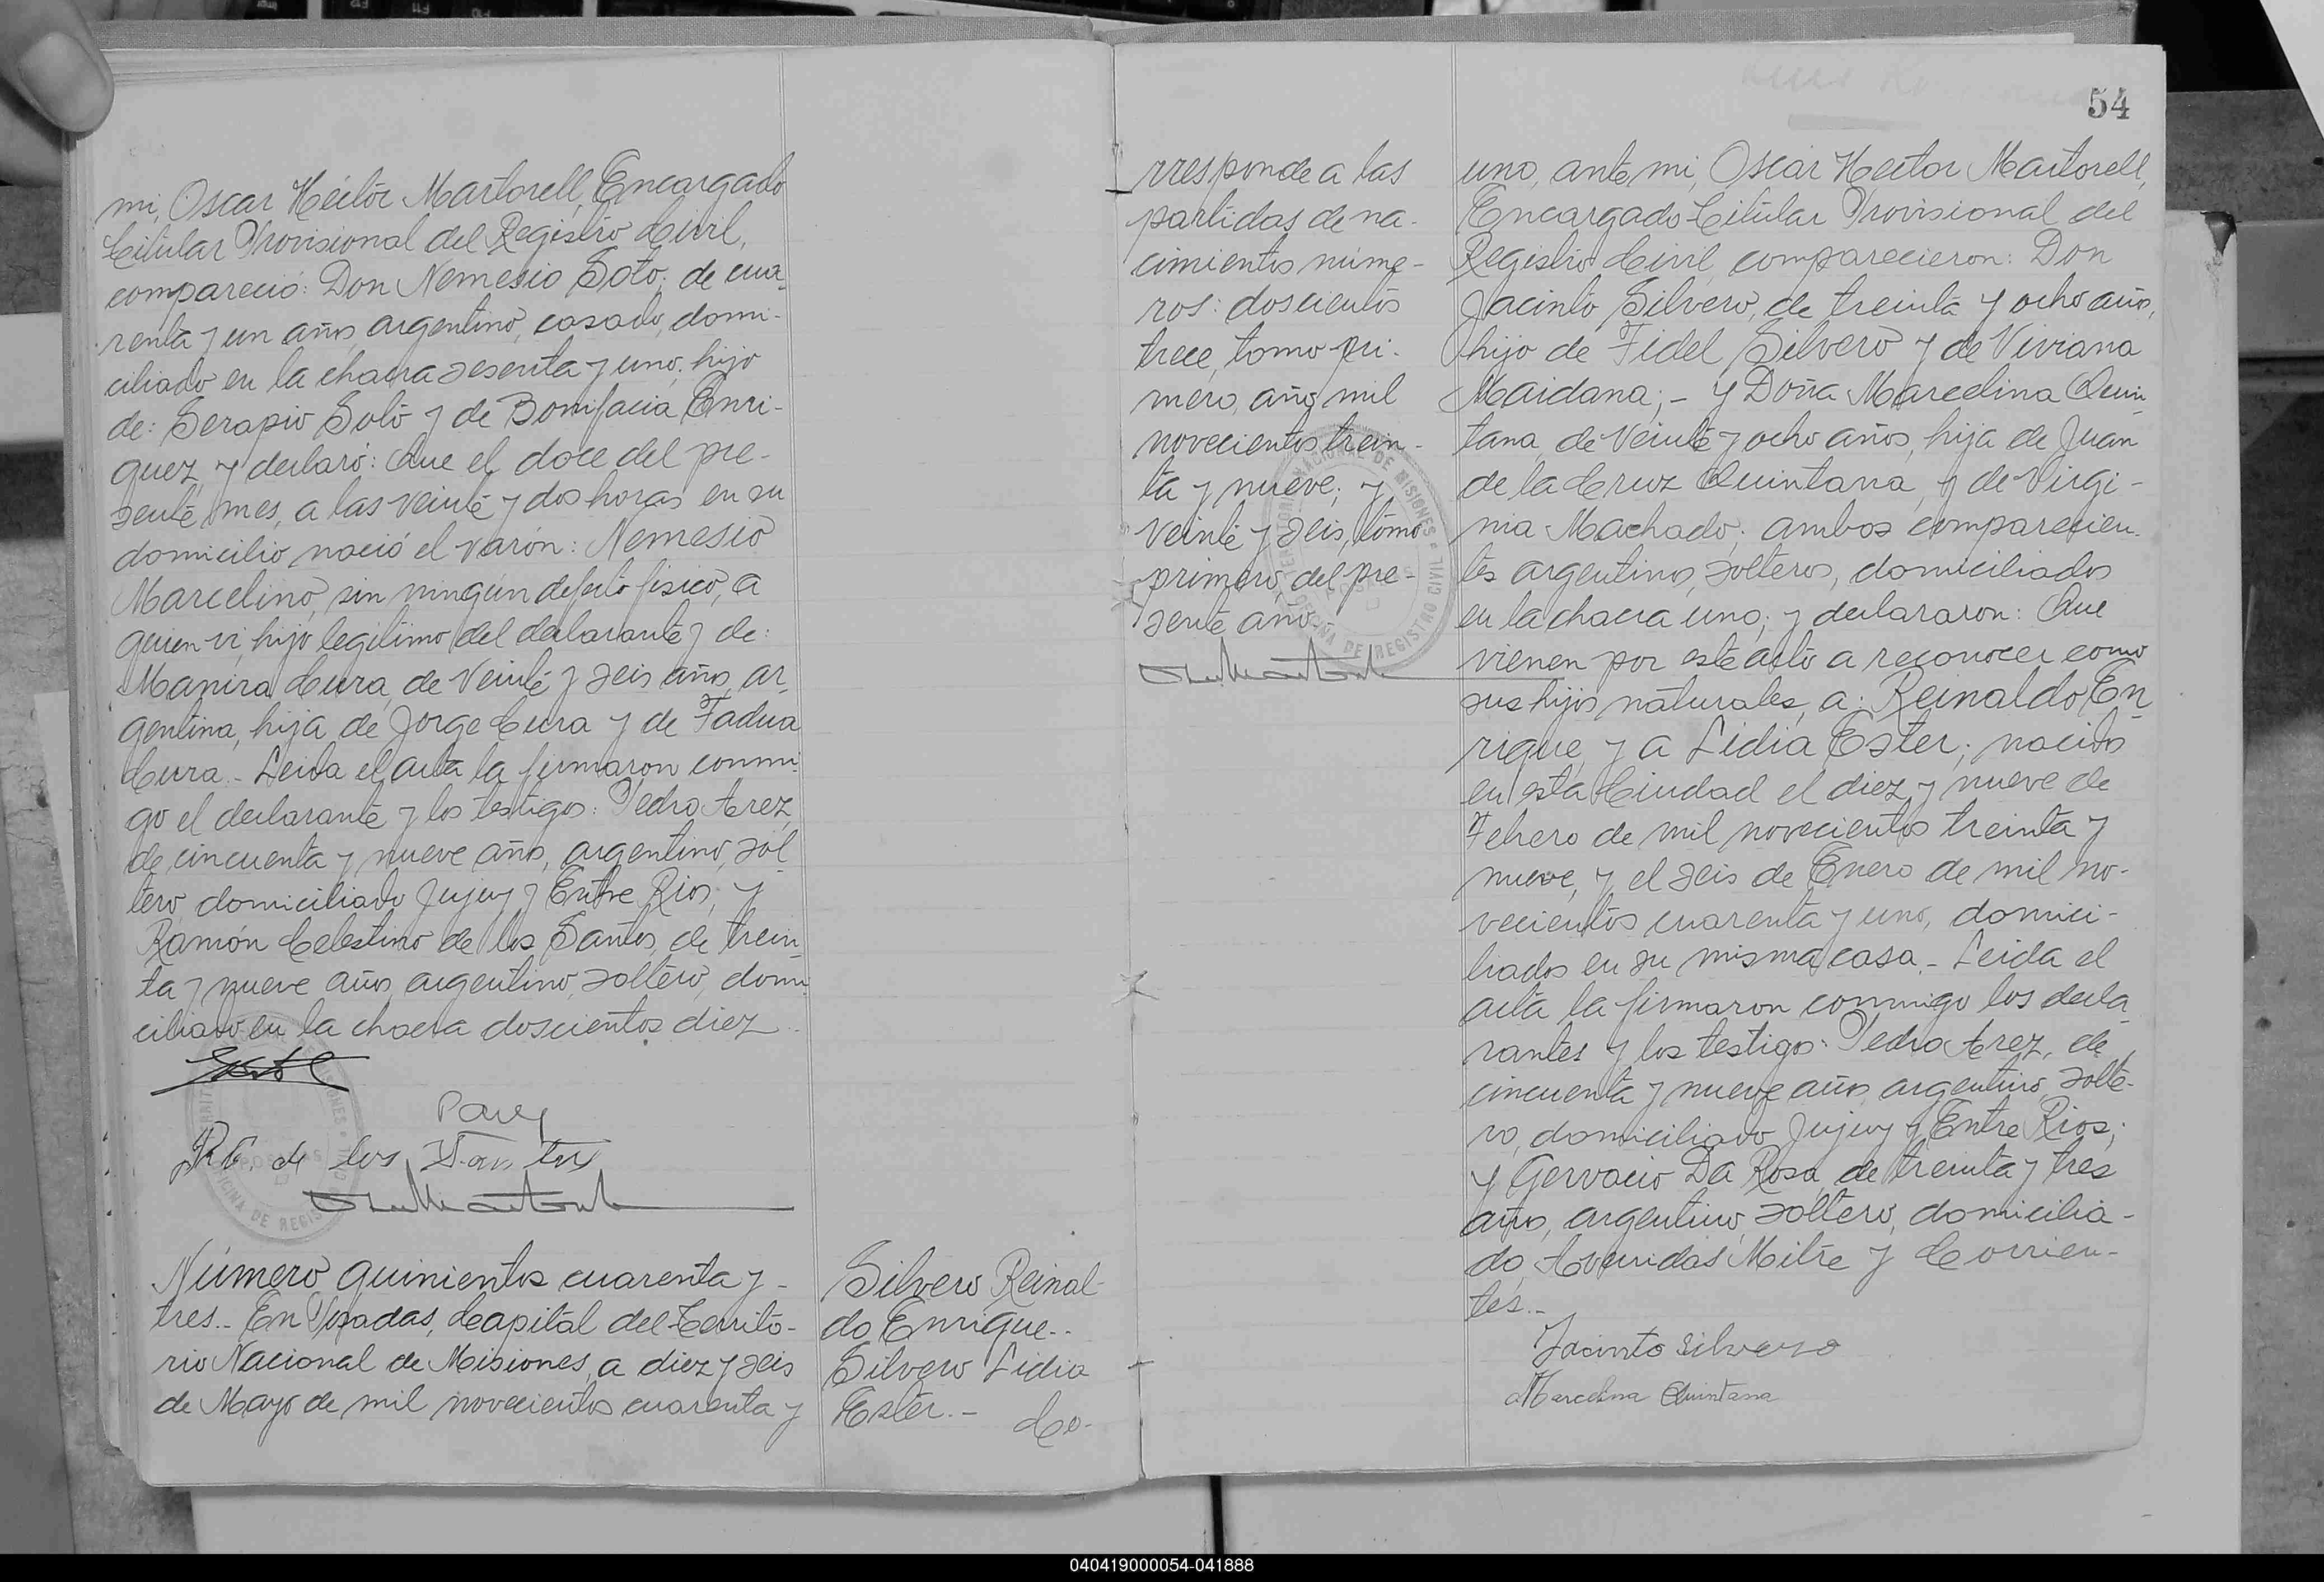 mi, Oscar Héctor Martorell, Encargado
Titular Provisional del Registro Civil,
compareció: Don Nemesio Soto, de cua-
renta y un años, argentino, casado, domi-
ciliado en la chacra sesenta y uno; hijo
de: Serapio Soto y de Bonifacia Enri-
quez, y declaró: Que el doce del pre-
sente mes, a las veinte y dos horas en su
domicilio nació el varón: Nemesio
Marcelino, sin ningún defecto fisico, a
quien vi, hijo legitimo del declarante y de:
Manira Cura, de veinte y seis años, ar-
gentina, hija de Jorge Cura y de Fadua
Cura.- Leida el acta la firmaron conmi-
go el declarante y los testigos: Pedro Arez,
de cincuenta y nueve años, argentino, sol-
tero, domiciliado Jujuy y Entre Rios; y
Ramón Celestino de los Santos, de trein-
ta y nueve años, argentino, soltero, domi-
ciliado en la chacra doscientos diez.-
R C. de los Santos
Número quinientos cuarenta y
tres.- En Posadas, Capital del Territo-
rio Nacional de Misiones, a diez y seis
de Mayo de mil novecientos cuarenta y
Silvero Reinal-
do Enrique.-
Silvero Lidia
Ester.-
Co-
rresponde a las
partidas de na-
cimientos núme-
ros: doscientos
trece, tomo pri-
mero, año mil
novecientos trein-
ta y nueve; y
veinte y seis, tomo
primero, del pre-
sente año.-
TERRITORIO NACIONAL DE MISIONES
OFICINA DE REGISTRO CIVIL
54
uno, ante mi, Oscar Hector Martorell,
Encargado Titular Provisional del
Registro Civil, comparecieron: Don
Jacinto Silvero, de treinta y ocho años,
hijo de Fidel Silvero y de Viviana
Maidana; - y Doña Marcelina Quin-
tana, de veinte y ocho años, hija de Juan
de la Cruz Quintana, y de Virgi-
nia Machado; ambos comparecien-
tes argentinos, solteros, domiciliados
en la chacra uno; y declararon: Que
vienen por este acto a reconocer como
sus hijos naturales, a: Reinaldo En-
rique, y a Lidia Ester; nacidos
en esta Ciudad el diez y nueve de
Febrero de mil novecientos treinta y
nueve, y el seis de Enero de mil no-
vecientos cuarenta y uno, domici-
liados en su misma casa.- Leida el
acta la firmaron conmigo los decla-
rantes y los testigo: Pedro Arez, de
cincuenta y nueve años, argentino, solte-
ro, domiciliado Jujuy y Entre Rios;
y Gervacio Da Rosa, de treinta y tres
años, argentino, soltero, domicilia-
do, Avenidas Mitre y Corrien-
tes.-
Jacinto Silvero
Marcelina Quintana
040419000054-041888